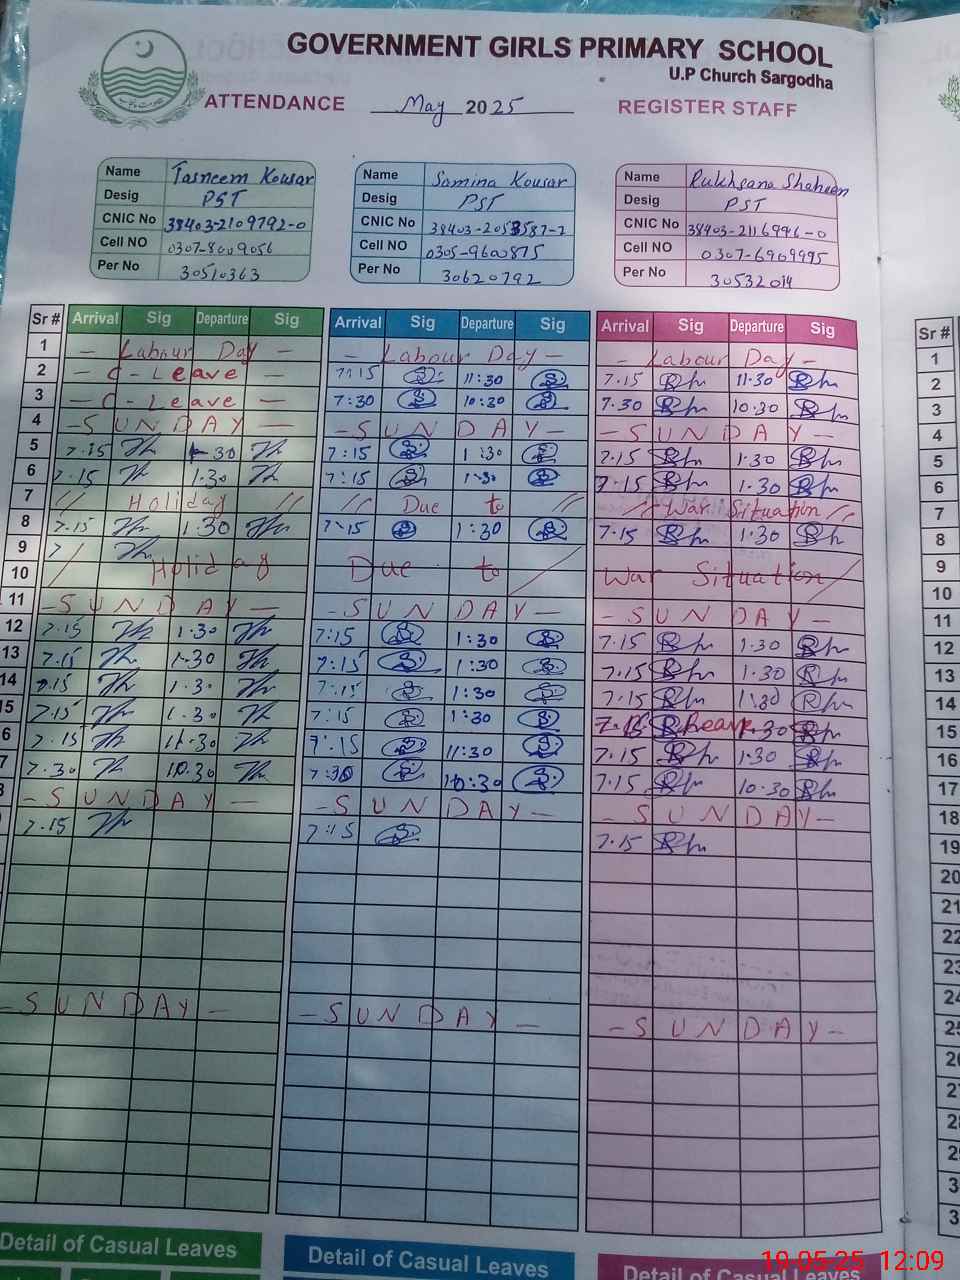 GOVERNMENT GIRLS PRIMARY SCHOOL
U.P Church Sargodha
ATTENDANCE May 2025 REGISTER STAFF
Name Tasneem Kousar Name Samina Kousar Name Rukhsana Shaheen
Desig PST Desig PST Desig PST
CNIC No 38403-2109792-0 CNIC No CNIC No 38403-2116996-0
Cell NO 0307-8009056 Cell NO 0305-9600875 Cell NO 0307-6909995
Per No 30510363 Per No 30620792 Per No 30532014
Sr # Arrival Sig Departure Sig Arrival Sig Departure Sig Arrival Sig Departure Sig Sr #
1 - Labour Day - - Labour Day - - Labour Day - 1
2 - C-Leave - 7:15 11:30 7.15 11.30 2
3 - C-Leave - 7:30 10:30 7.30 10.30 3
4 - SUNDAY - - SUNDAY - - SUNDAY - 4
5 7.15 1.30 7:15 1:30 7.15 1.30 5
6 7.15 1.30 7:15 1:30 7.15 1.30 6
7 // Holiday // // Due to // // War Situation // 7
8 7.15 1.30 7:15 1:30 7.15 1.30 8
9 9
10 / Holiday Due to / War Situation / 10
11 - SUNDAY - - SUNDAY - - SUNDAY - 11
12 7.15 1.30 7:15 1:30 7.15 1.30 12
13 7.15 1.30 7:15 1:30 7.15 1.30 13
14 7.15 1.30 7:15 1:30 7.15 1:30 14
15 7.15 1.30 7:15 1:30 7.15 Leave 1.30 15
6 7.15 11.30 7:15 11:30 7.15 1.30 16
7 7.30 10.30 7:30 10:30 7.15 10.30 17
- SUNDAY - - SUNDAY - - SUNDAY - 18
7.15 7:15 7.15 19
20
21
22
23
24
- SUNDAY - - SUNDAY - - SUNDAY - 25
26
27
28
29
3
3
Detail of Casual Leaves Detail of Casual Leaves Detail of Casual Leaves
19-05-25 12:09